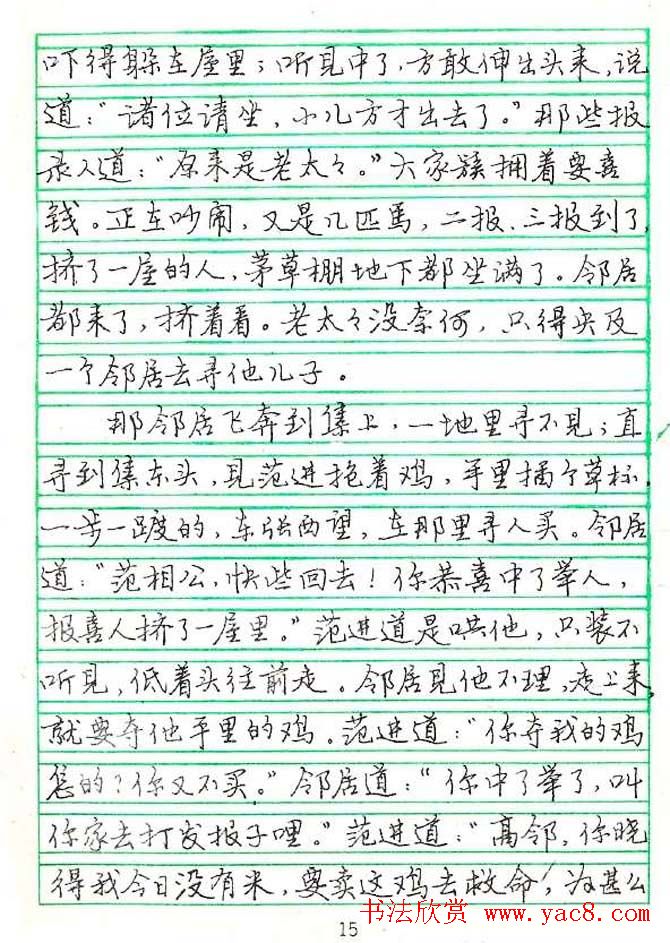 吓得躲在屋里；听见中了，方敢伸出头来，说
道：“诸位请坐，小儿方才出去了。”那些报
录人道：“原来是老太々。”大家簇拥着要喜
钱。正在吵闹，又是几匹馬，二报、三报到了，
挤了一屋的人，茅草棚地下都坐满了。邻居
都来了，挤着看。老太々没奈何，只得央及
一个邻居去寻他儿子。
那邻居飞奔到集上，一地里寻不见；直
寻到集东头，见范进抱着鸡，手里插个草标，
一步一踱的，东张西望，在那里寻人买。邻居
道：“范相公，快些回去！你恭喜中了举人，
报喜人挤了一屋里。”范进道是哄他，只装不
听见，低着头往前走。邻居见他不理，走上来，
就要夺他手里的鸡。范进道：“你夺我的鸡
怎的？你又不买。”邻居道：“你中了举了，叫
你家去打发报子哩。”范进道：“高邻，你晓
得我今日没有米，要卖这鸡去救命，为甚么
15
书法欣赏 www.yac8.com